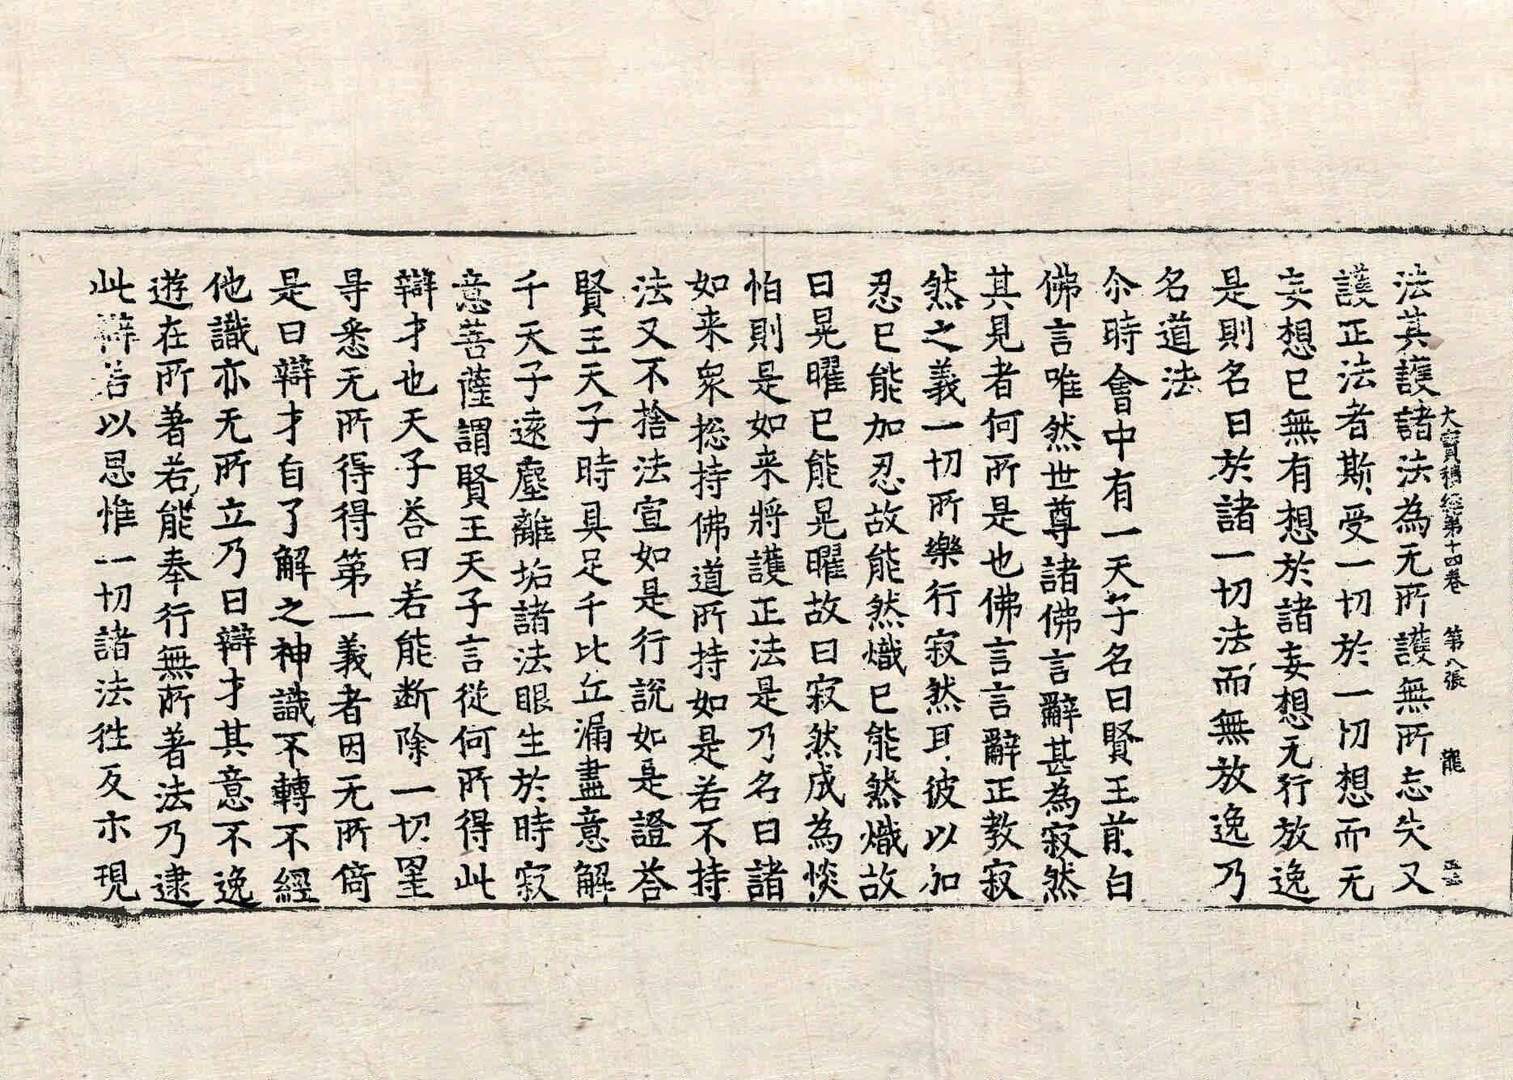 大寶積經第十四卷 第八張 龍
法其護諸法為无所護無所忘失又
護正法者斯受一切於一切想而无
妄想已無有想於諸妄想无行放逸
是則名曰於諸一切法而無放逸乃
名道法
尒時會中有一天子名曰賢王前白
佛言唯然世尊諸佛言辭甚為寂然
其見者何所是也佛言言辭正教寂
然之義一切所樂行寂然耳彼以加
忍已能加忍故能然熾已能然熾故
曰晃曜已能晃曜故曰寂然成為惔
怕則是如来將護正法是乃名曰諸
如来衆捴持佛道所持如是若不持
法又不捨法宣如是行說如是證荅
賢王天子時具足千比丘漏盡意解
千天子遠塵離垢諸法眼生於時寂
意菩薩謂賢王天子言從何所得此
辯才也天子荅曰若能断除一切罣
㝵悉无所得得第一義者因无所倚
是曰辯才自了解之神識不轉不經
他識亦无所立乃曰辯才其意不逸
遊在所著若能奉行無所著法乃逮
此辯若以思惟一切諸法往反示現